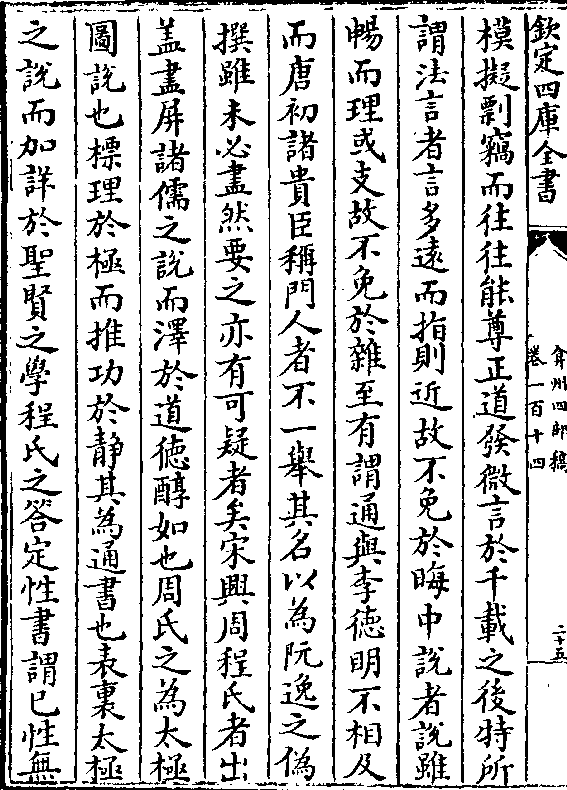 欽定四庫全書
弇州四部稿
卷一百十四
二十五
模擬剽竊而往往能尊正道發微言於千載之後特所
謂法言者言多遠而指則近故不免於晦中說者說雖
暢而理或支故不免於雜至有謂通與李德明不相及
而唐初諸貴臣稱門人者不一舉其名以為阮逸之偽
撰雖未必盡然要之亦有可疑者矣宋興周程氏者出
盖盡屏諸儒之說而澤於道徳醇如也周氏之為太極
圖說也標理於極而推功於靜其為通書也表裏太極
之說而加詳於聖賢之學程氏之答定性書謂已性無